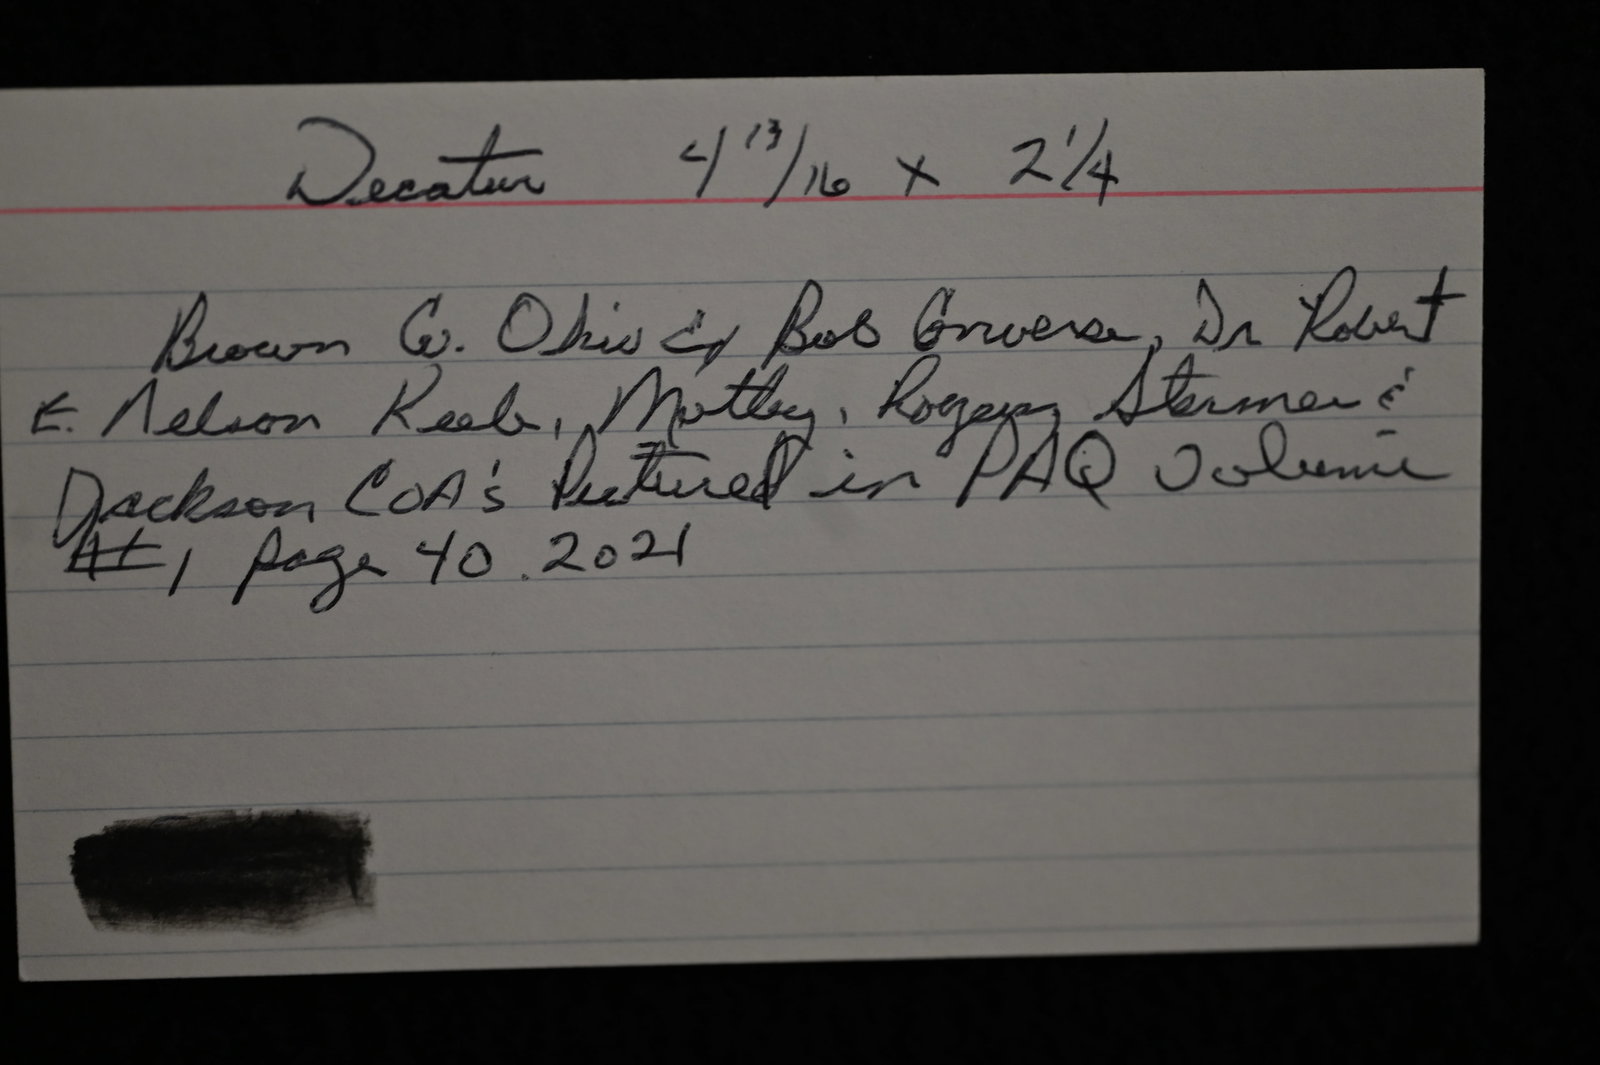 Decatur 4 13/16 x 2 1/4
Brown Co. Ohio Ex Bob Converse, Dr Robert
E. Nelson Keeb, Motley, Rogers, Stermer &
Jackson COA's Pictured in PAQ Volume
#1 page 40. 2021